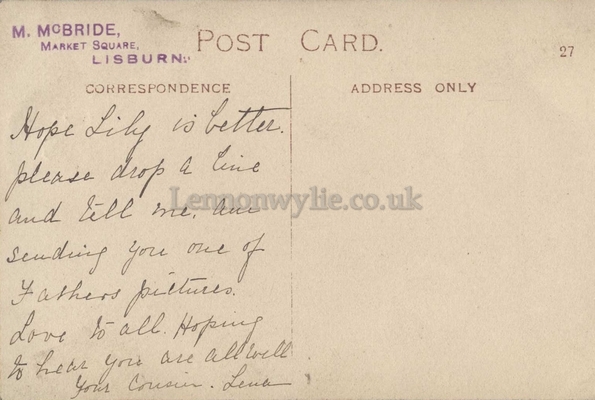 M. McBRIDE,
MARKET SQUARE,
LISBURN.
POST CARD.
27
CORRESPONDENCE
ADDRESS ONLY
Hope Lily is better.
please drop a line
and tell me. am
sending you one of
Fathers pictures.
Love to all. Hoping
to hear you are all well
Your Cousin. Lena
Lennonwylie.co.uk